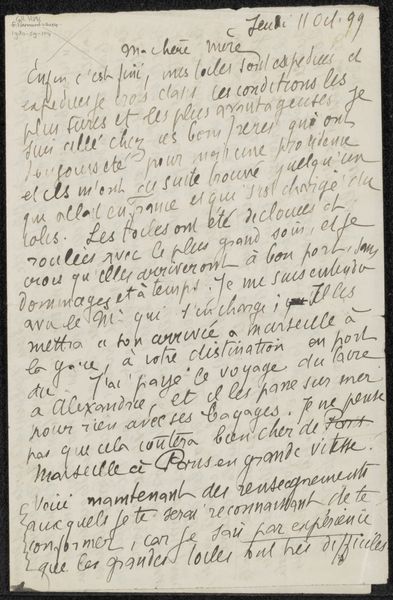 Jeudi 11 Oct. 99
Ma chère Mère
Enfin, c'est fini, mes toiles sont expédiées, et
expédiées je crois dans les conditions les
plus sures et les plus avantageuses. Je
suis allé chez ces bons frères qui ont
toujours été pour moi une providence
et ils m'ont de suite trouvé quelqu'un
qui allait en France et qui s'est chargé du
colis. Les toiles ont été déclouées et
roulées avec le plus grand soin, et je
crois qu'elles arriveront à bon port, sans
dommages et à temps. Je me suis entendu
avec le Mr qui s'en charge; Il les
mettra a son arrivée a Marseille à
la gare, à votre distination en port
dû. J'ai payé le voyage du Caire
a Alexandrie, et il les passe sur mer
pour rien avec ses bagages. Je ne pense
pas que cela coûtera bien cher de Port
Marseille à Paris en grande vitesse.
Voici maintenant des renseignements
auxquels je te serai reconnaissant de te
conformer, car je sais par expérience
que les grandes toiles sont très difficiles